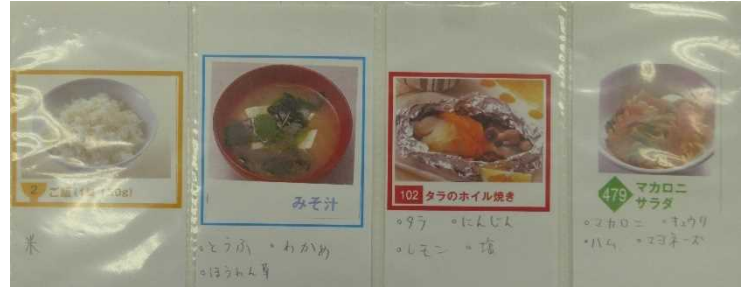 2 ご飯(1杯 150g)
米
みそ汁
•とうふ •わかめ
•ほうれん草
102 タラのホイル焼き
•タラ •にんじん
•レモン •塩
479 マカロニ
サラダ
•マカロニ •キュウリ
•ハム •マヨネーズ